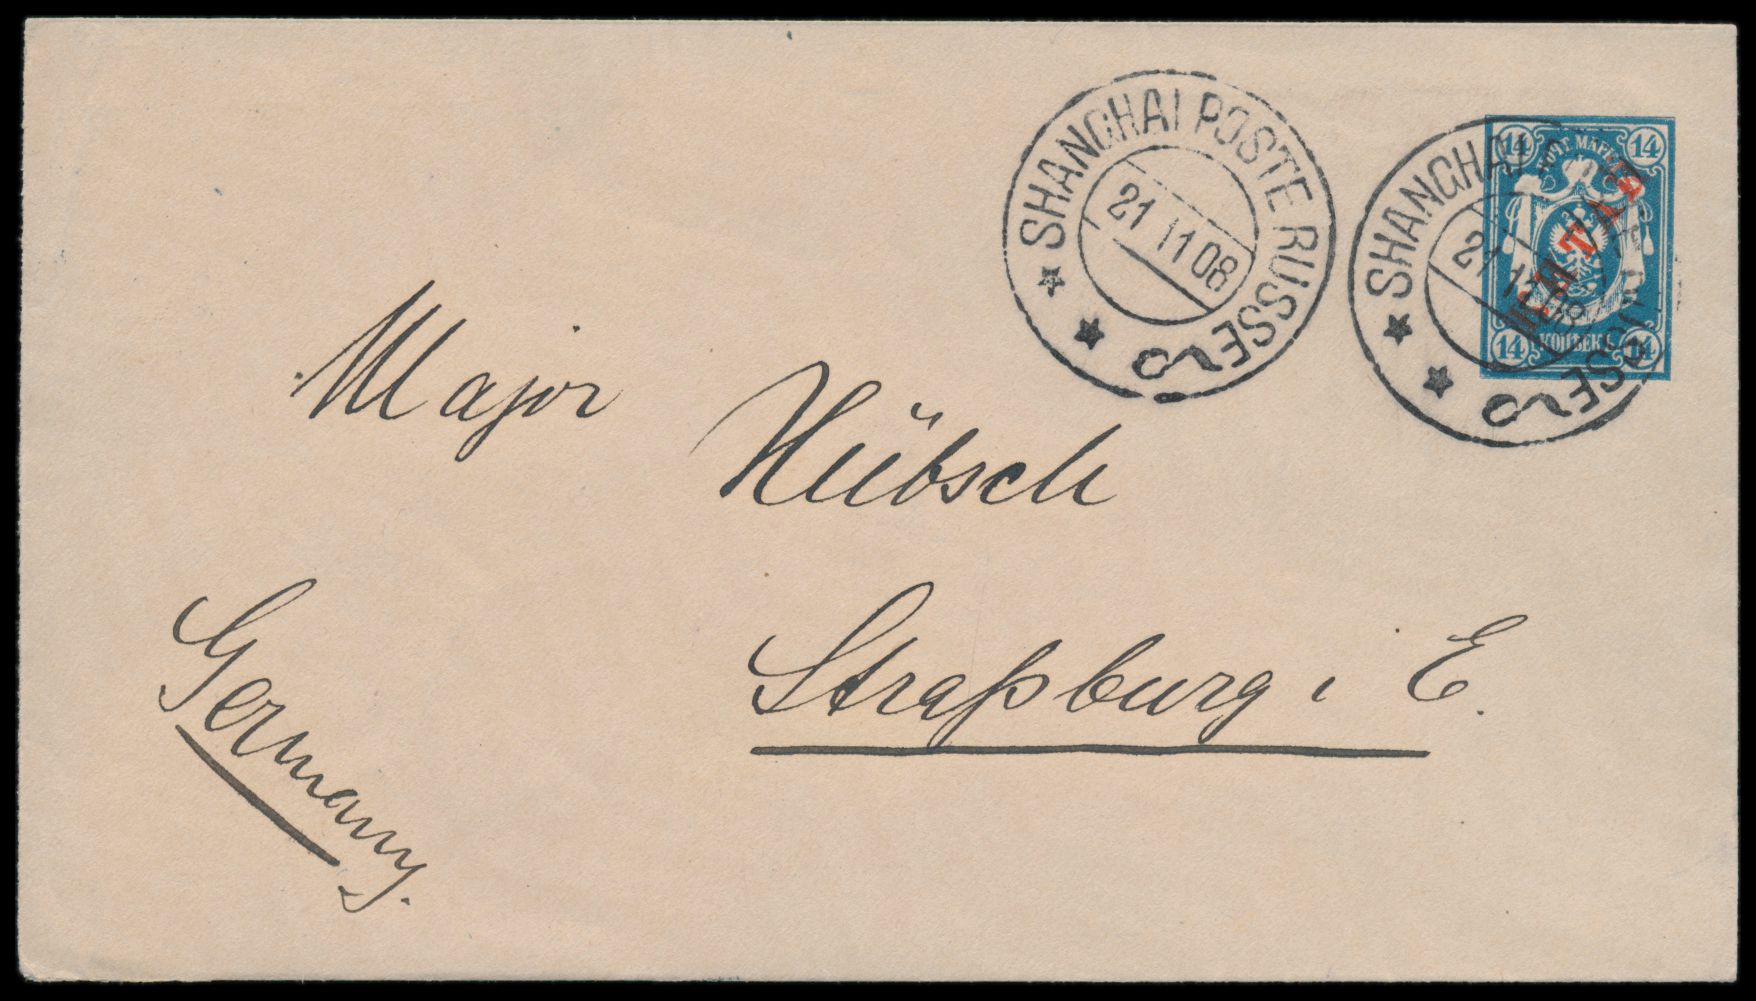 SHANGHAI POSTE RUSSE
21 11 08
SHANGHAI POSTE RUSSE
21 11 08
14 14
ПОЧТ. МАРКА
КИТАЙ
14 КОПѢЕКЪ 14
Major Hübsch
Straßburg i E.
Germany.